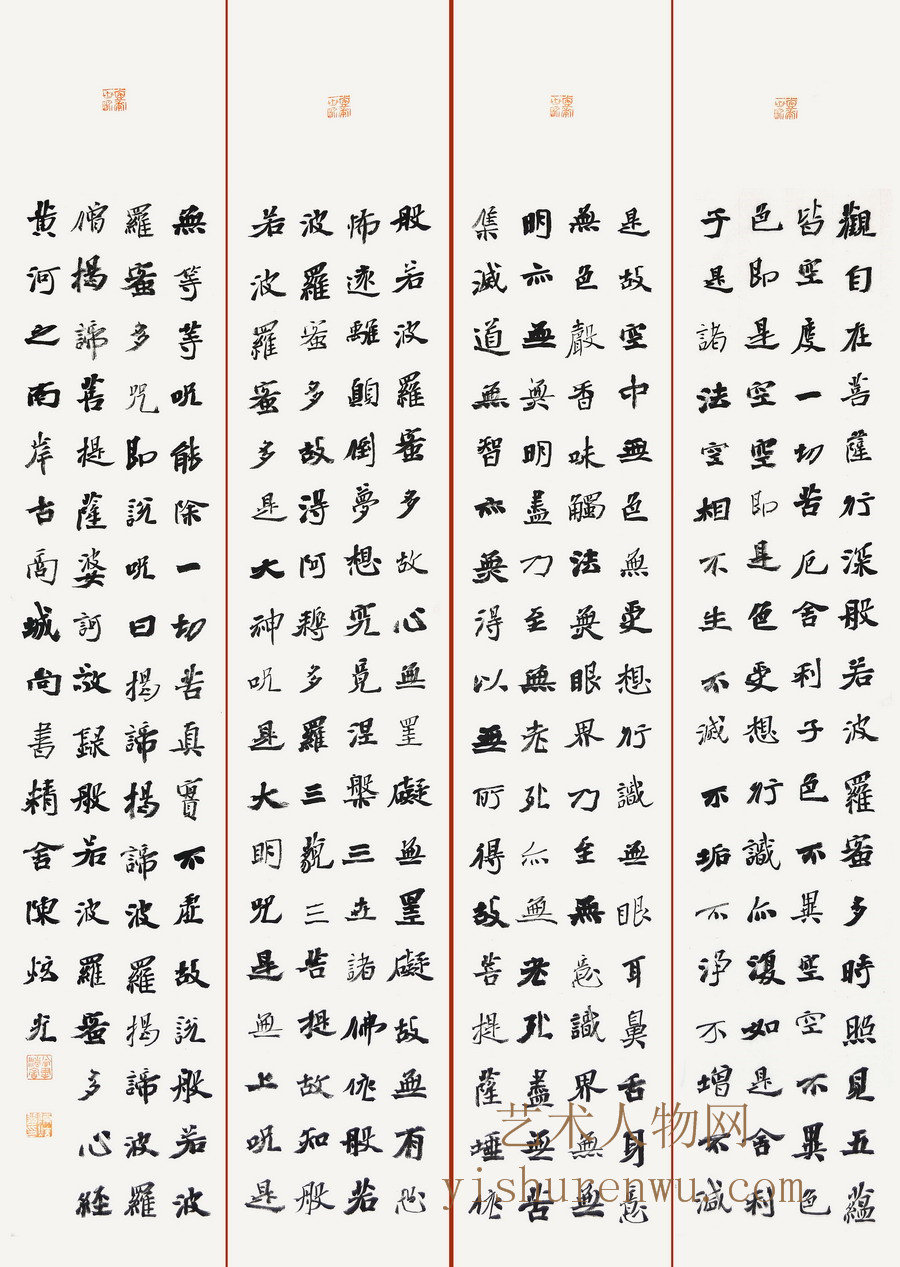 觀自在菩薩行深般若波羅蜜多時照見五蘊
皆空度一切苦厄舍利子色不異空空不異色
色即是空空即是色受想行識亦復如是舍利
子是諸法空相不生不滅不垢不淨不增不減
是故空中無色無受想行識無眼耳鼻舌身意
無色聲香味觸法無眼界乃至無意識界無無
明亦無無明盡乃至無老死亦無老死盡無苦
集滅道無智亦無得以無所得故菩提薩埵依
般若波羅蜜多故心無罣礙無罣礙故無有恐
怖遠離顛倒夢想究竟涅槃三世諸佛依般若
波羅蜜多故得阿耨多羅三藐三菩提故知般
若波羅蜜多是大神呪是大明咒是無上呪是
無等等呪能除一切苦真實不虛故說般若波
羅蜜多咒即說呪曰揭諦揭諦波羅揭諦波羅
僧揭諦菩提薩婆訶敬録般若波羅蜜多心經
黄河之南岸古商城尚書精舍陳炫光
艺术人物网
yishurenwu.com